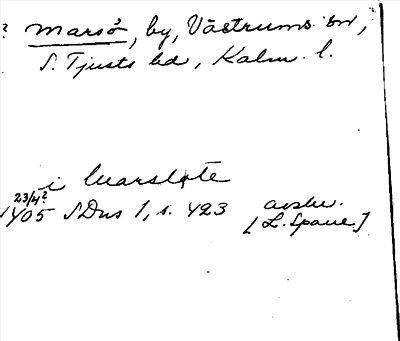 ? Marsö, by, Västrums sn,
S. Tjusts hd, Kalm. l.
i Marsløte
23/4?
1405 SDns 1, s. 423 avskr.
[L. Spave]